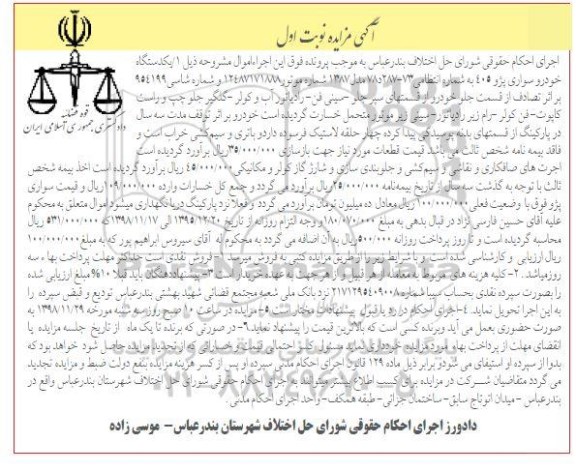 آگهی مزایده نوبت اول
قوه قضائیه
دادگستری جمهوری اسلامی ایران
اجرای احکام حقوقی شورای حل اختلاف بندرعباس به موجب پرونده فوق این اجراء اموال مشروحه ذیل ۱/یکدستگاه
خودرو سواری پژو ۴۰۵ به شماره انتظامی ۱۳- مدل ۱۳۸۷ شماره موتور ۱۲۴۸۷۱۷۱۸۷۸ و شماره شاسی ۹۵۴۱۹۹
بر اثر تصادف از قسمت جلو خودرو در قسمتهای سپر جلو -سینی فن- رادیاتور آب و کولر -گلگیر جلو چپ و راست
کاپوت- فن کولر -رام زیر رادیاتور- سینی زیر موتور متحمل خسارت گردیده است خودرو بر اثر توقف مدت سه سال
در پارکینگ از قسمتهای بدنه پوسیدگی پیدا کرده چهار حلقه لاستیک فرسوده دارد و باتری و سیم کشی خراب است و
فاقد بیمه نامه شخص ثالث می باشد. قیمت قطعات مورد نیاز جهت بازسازی ۳۵/۰۰۰/۰۰۰ ریال برآورد گردیده است
اجرت های صافکاری و نقاشی و سیم کشی و جلوبندی سازی و شارژ گاز کولر و مکانیکی ۴۵/۰۰۰/۰۰۰ ریال برآورد گردیده است اخذ بیمه شخص
ثالث با توجه به گذشت سه سال از تاریخ بیمه نامه ۲۵/۰۰۰/۰۰۰ ریال برآورد می گردد و جمع کل خسارات وارده ۱۰۹/۰۰۰/۰۰۰ ریال و قیمت سواری
پژو فوق با وضعیت فعلی ۱۰۰/۰۰۰/۰۰۰ ریال معادل ده میلیون تومان برآورد می گردد و فعلا نزد پارکینگ دریا نگهداری میشود اموال متعلق به محکوم
علیه آقای حسین فارسی نژاد در قبال بدهی به مبلغ ۱۸۰/۰۷۰/۰۰۰ و وجه التزام روزانه از تاریخ ۱۳۹۵/۱۲/۲۰ الی ۱۳۹۸/۱۱/۱۷ که ۵۳۱/۰۰۰/۰۰۰ ریال
محاسبه گردیده است و تا روز پرداخت روزانه ۵۰۰/۰۰۰ ریال به آن اضافه می گردد به محکوم له آقای سیروس ابراهیم پور که به مبلغ ۱۰۰/۰۰۰/۰۰۰
ریال ارزیابی و کارشناسی شده است و با شرایط زیر را از طریق مزایده کتبی به فروش میرسد. ۱-فروش نقدی است حداکثر مهلت پرداخت بها ، سه
روز میباشد . ۲- کلیه هزینه های مربوط به معامله از هر قبیل و از هر جهت به عهده خریدار است ۳- پیشنهاد دهندگان باید قبلا ۱۰% مبلغ ارزیابی شده
را بصورت سپرده نقدی بحساب سیبا شماره ۲۱۷۱۲۹۵۴۰۹۰۰۸ نزد بانک ملی شعبه مجتمع قضائی شهید بهشتی بندرعباس تودیع و قبض سپرده را
به این اجرا تحویل نماید. ۴-اجرای احکام در رد یا قبول پیشنهادات مختار است ۵- مزایده در ساعت ۱۰ صبح روز سه شنبه مورخه ۱۳۹۸/۱۱/۲۹ به
صورت حضوری بعمل می آید و برنده کسی است که بالاترین قیمت را پیشنهاد نماید. ۶- در صورتی که برنده تا یک ماه از تاریخ جلسه مزایده یا
انقضای مهلت از پرداخت بهاء مورد مزایده خودداری نماید مسئول کسر احتمالی قیمت و خساراتی که از تجدید مزایده حاصل شود خواهد بود که
بدوا از سپرده او استیفای می شود و برابر ذیل ماده ۱۲۹ قانون اجرای احکام مدنی سپرده او پس از کسر هزینه مزایده بنفع دولت ضبط و مزایده تجدید
می گردد متقاضیان شرکت در مزایده برای کسب اطلاع بیشتر میتوانند به اجرای احکام حقوقی شورای حل اختلاف شهرستان بندرعباس واقع در
بندرعباس -میدان اتوتاج سابق- ساختمان جرائی- طبقه همکف- واحد اجرای احکام مدنی
دادورز اجرای احکام حقوقی شورای حل اختلاف شهرستان بندرعباس- موسی زاده